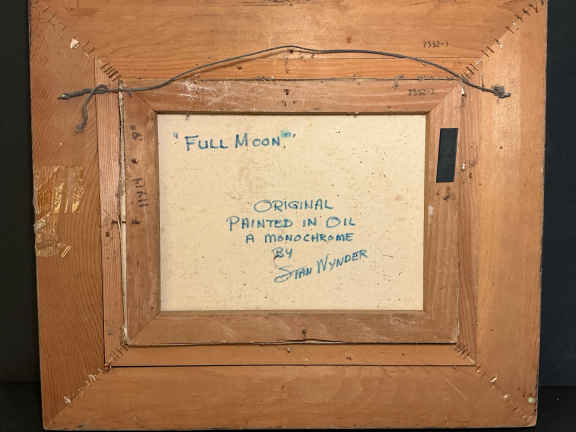 7532-1
7532-1
"FULL MOON."
ORIGINAL
PAINTED IN OIL
A MONOCHROME
BY
STAN WYNDER